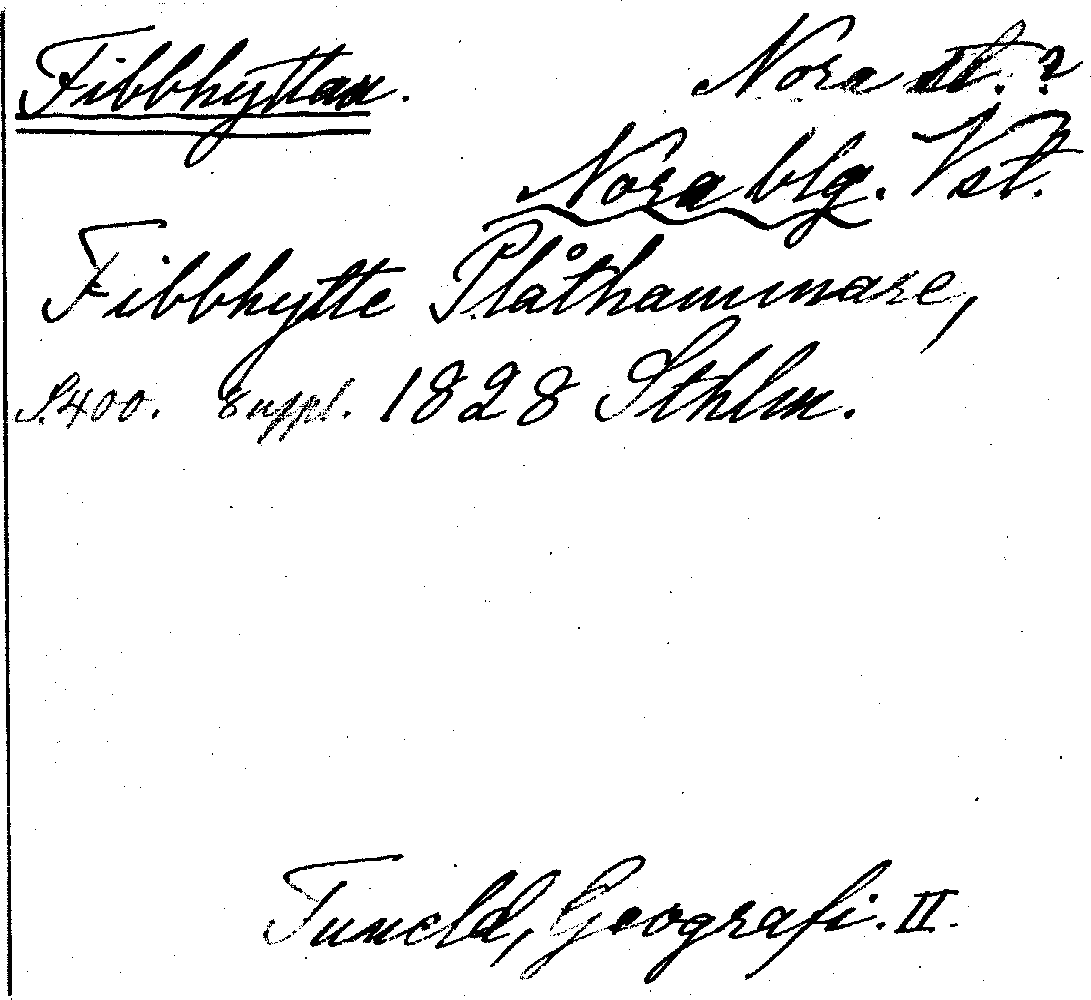 Fibbhyttan. Nora st. ?
Nora blg. Vst.
Fibbhytte Plåthammare,
S. 400. Suppl. 1828 Sthlm.
Tuneld, Geografi. II.